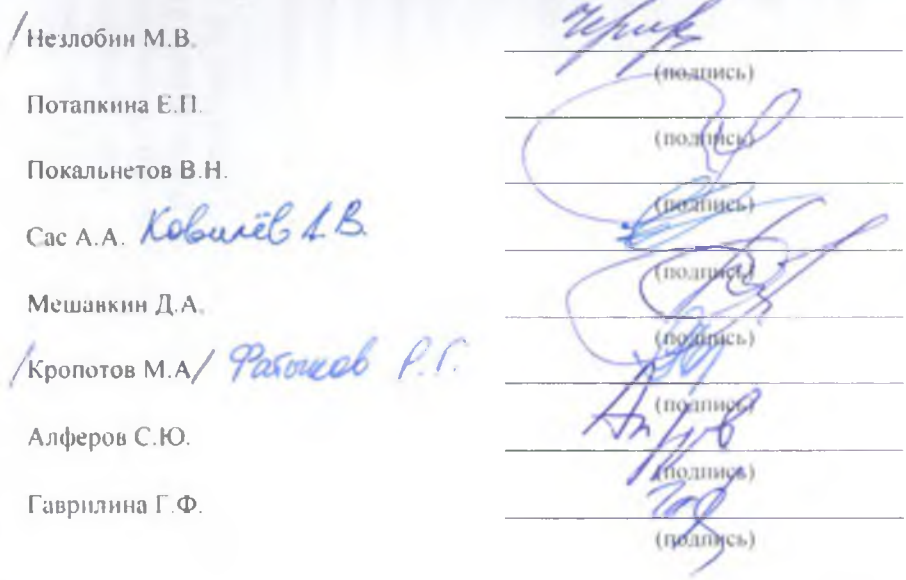 /Незлобин М.В.
(подпись)
Потапкина Е.П.
(подпись)
Покальнетов В.Н.
(подпись)
Сас А.А. Ковилёв А.В.
(подпись)
Мешавкин Д.А.
(подпись)
/Кропотов М.А/ Р.Г.
(подпись)
Алферов С.Ю.
(подпись)
Гаврилина Г.Ф.
(подпись)